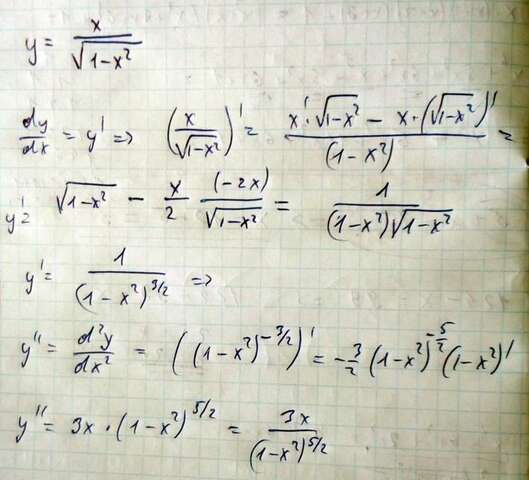 y = x/√(1-x²)
dy/dx = y' => (x/√(1-x²))' = (x'·√(1-x²) - x·(√(1-x²))')/(1-x²) =
y' = √(1-x²) - x/2 (-2x)/√(1-x²) = 1/((1-x²)√(1-x²))
y' = 1/(1-x²)^(3/2) =>
y'' = d²y/dx² = ((1-x²)^(-3/2))' = -3/2 (1-x²)^(-5/2) (1-x²)'
y'' = 3x·(1-x²)^(5/2) = 3x/(1-x²)^(5/2)